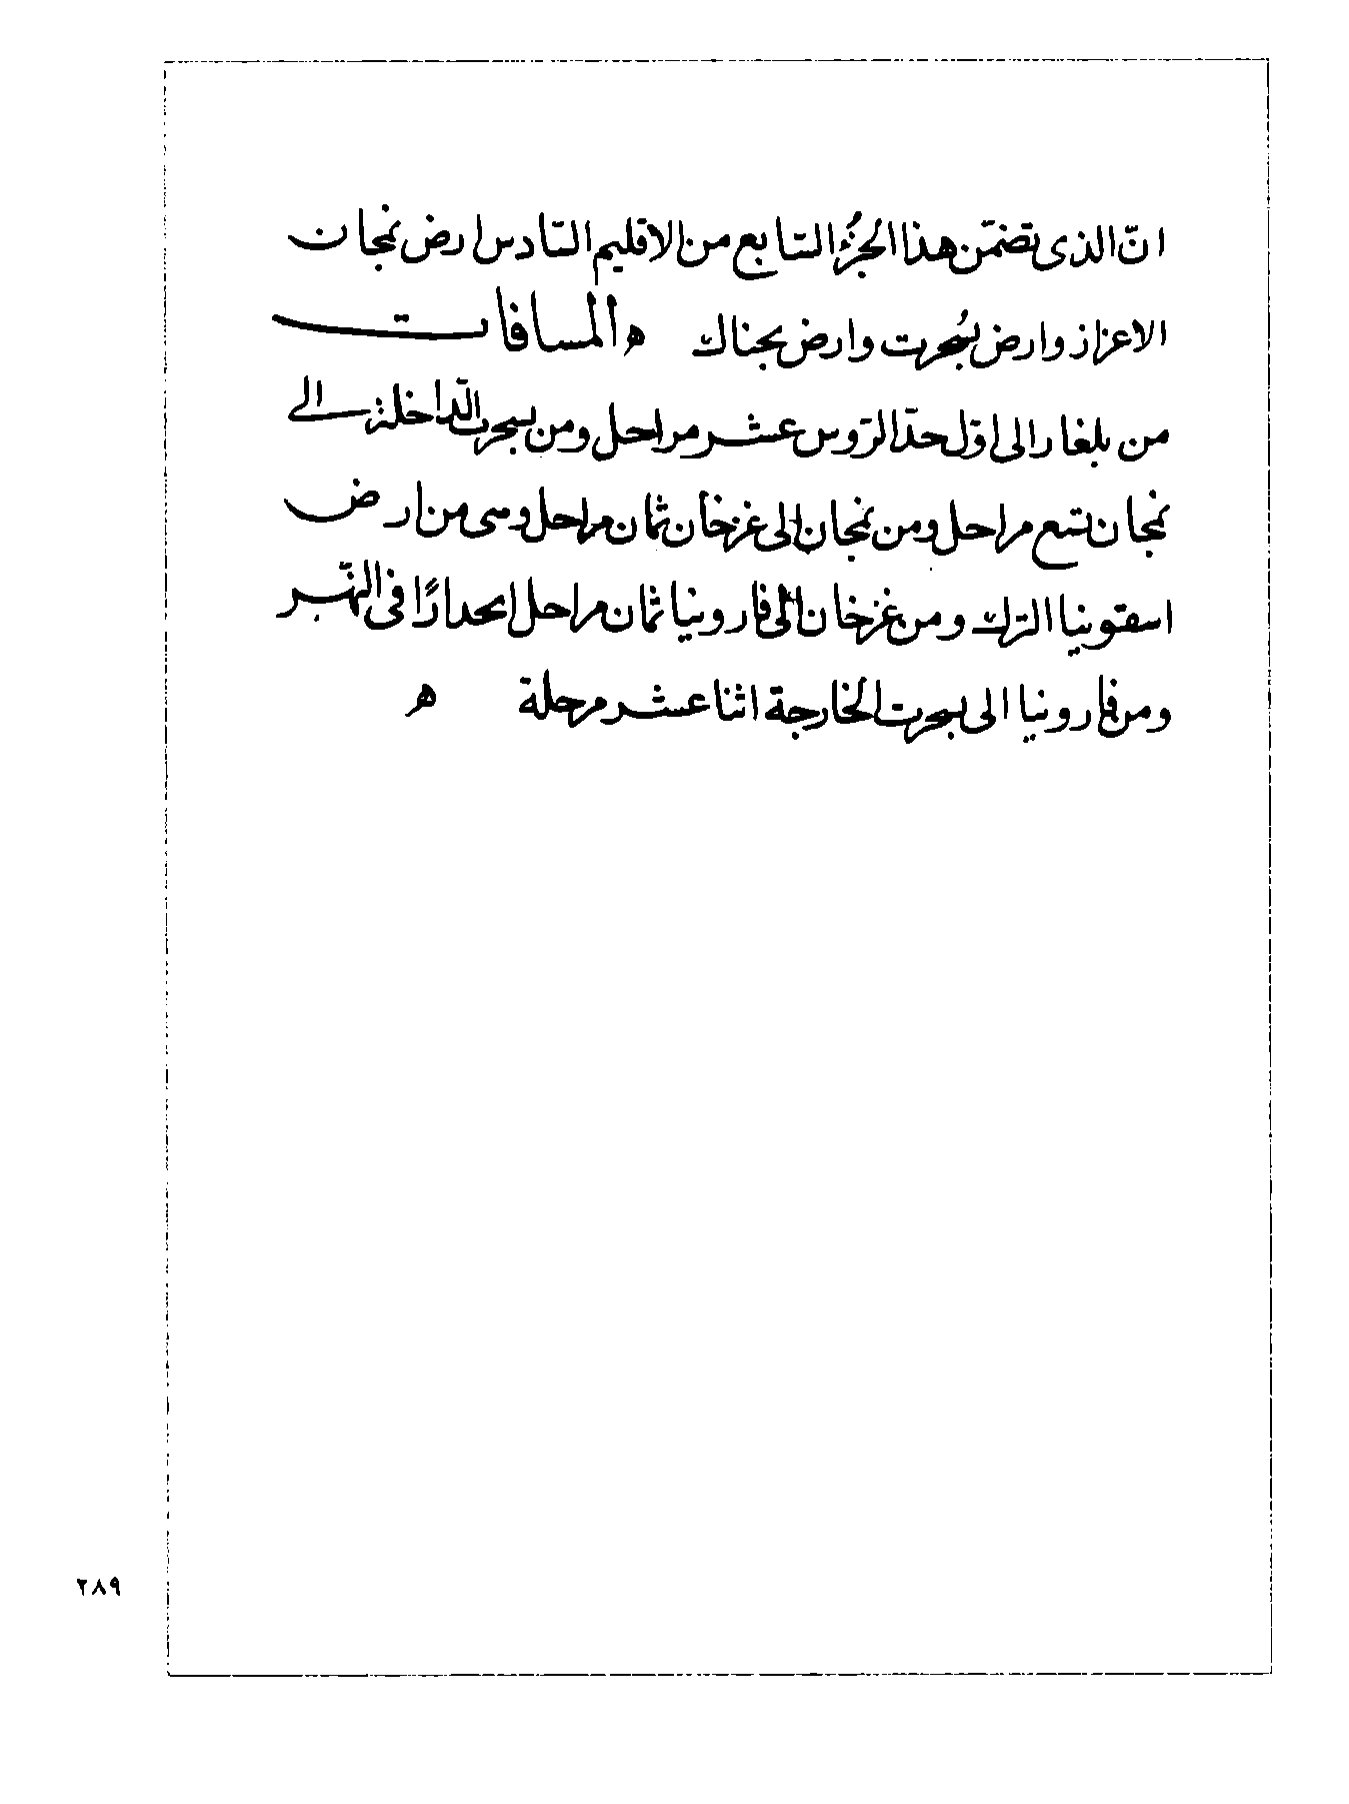 انّ الذى تضمّن هذا الجزُء السّابع من الاقليم السّادس ارض نمجان
الاعزاز وارض بُسجرت وارض بجناك ه المسافات
من بلغار الى اوّل حدّ الرّوس عشر مراحل ومن بسجرت الدّاخلة الى
نمجان تسع مراحل ومن نمجان الى غزخان ثمان مراحل وسى من ارض
اسقونيا الترك ومن غزخان الى قارونيا ثمان مراحل انحدارًا فى النّهر
ومن قارونيا الى بسجرت الخارجة اثنا عشر مرحلة ه
٢٨٩